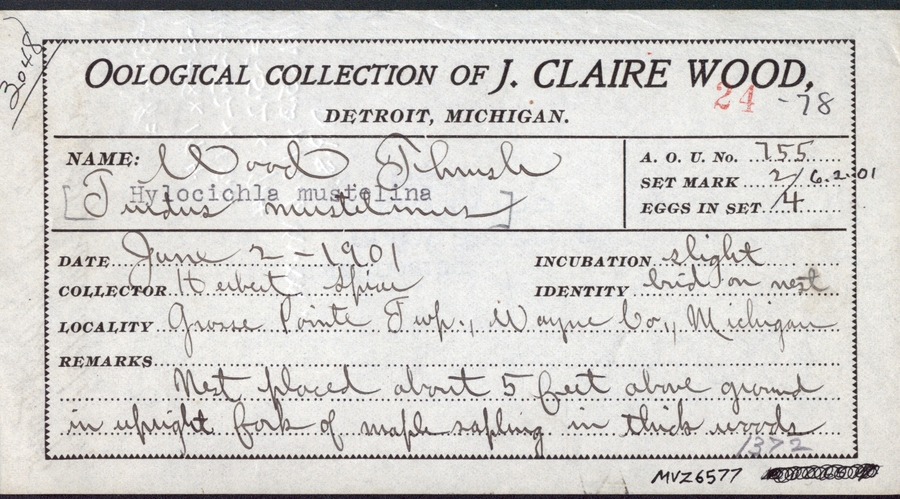 3048
OOLOGICAL COLLECTION OF J. CLAIRE WOOD,
24 -78
DETROIT, MICHIGAN.
NAME: Wood Thrush
A. O. U. No. 755
Hylocichla mustelina
SET MARK 2/6.2.01
[Turdus mustelinus]
EGGS IN SET 4
DATE June 2 - 1901
INCUBATION slight
COLLECTOR Herbert Spicer
IDENTITY brid on nest
LOCALITY Grosse Pointe Twp., Wayne Co., Michigan
REMARKS
Nest placed about 5 feet above ground
in upright fork of maple sapling in thick woods
1372
MVZ6577